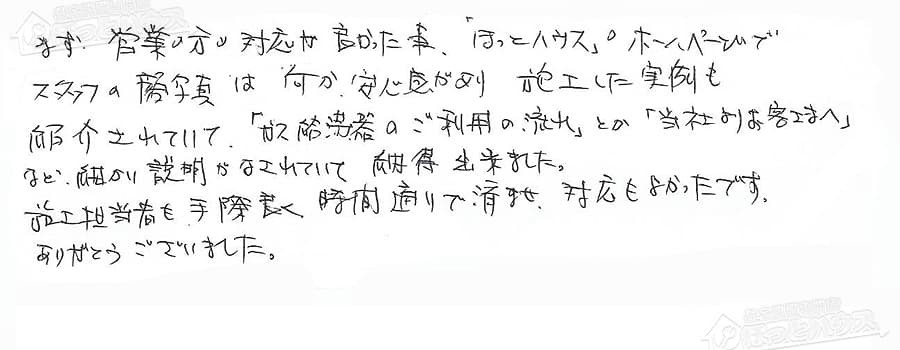 まず、営業の方の対応が良かった事、「ほっとハウス」のホームページで
スタッフの顔写真は何か、安心感があり 施工した実例も
紹介されていて、「ガス給湯器のご利用の流れ」とか「当社よりお客さまへ」
など、細かい説明がなされていて 納得出来ました。
施工担当者も手際良く、時間通りで済ませ、対応もよかったです。
ありがとうございました。
ほっとハウス
ほっとハウス